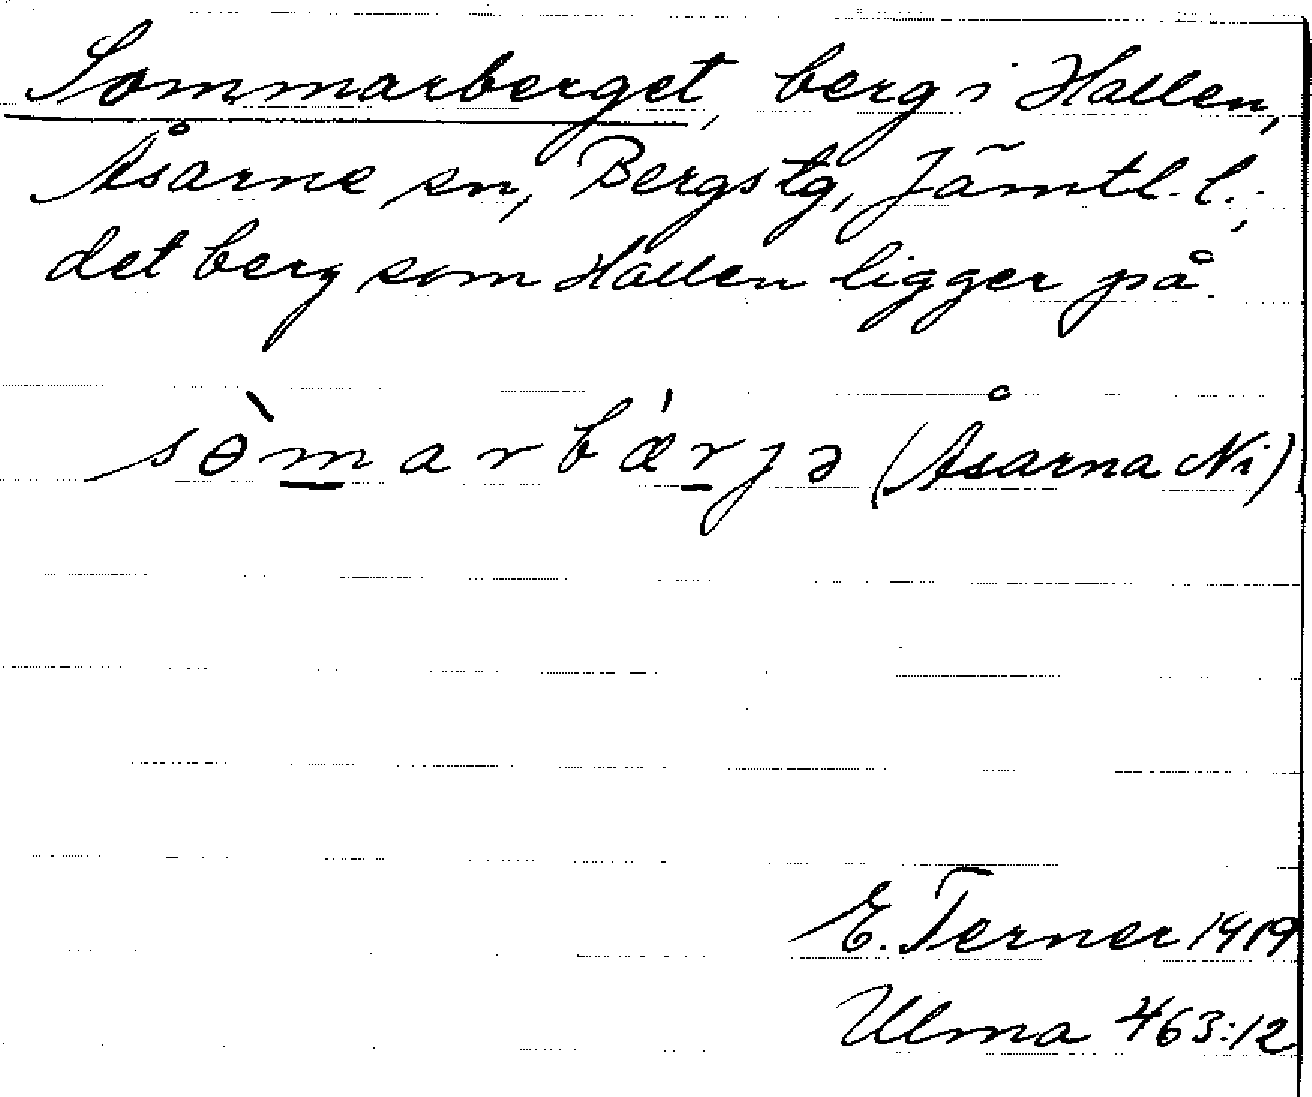 Sommarberget, berg i Hallen,
Åsarne sn, Bergs tg, Jämtl. l.;
det berg som Hallen ligger på.
sòmarbǽrjə (Åsarna Ni)
E. Terner 1919
Ulma 463:12